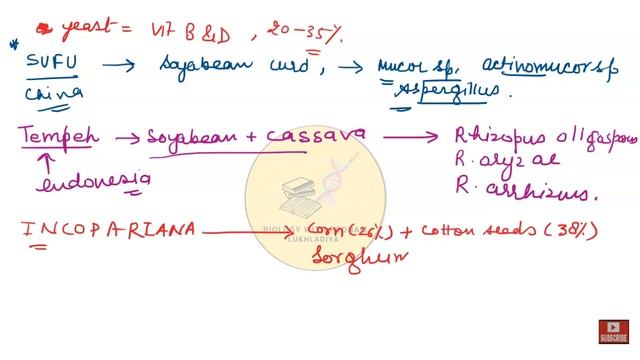 yeast = Vit B & D, 20-35%.
* SUFU → Soyabean curd, → Mucor sp. actinomucor sp
China Aspergillus.
Tempeh → Soyabean + cassava → Rhizopus oligosporus
R. oryzae
endonesia R. arrhizus.
INCOPARIANA → Corn (26%) + Cotton seeds (38%)
Sorghum
BIOLOGY
LUKHLADIYA
SUBSCRIBE